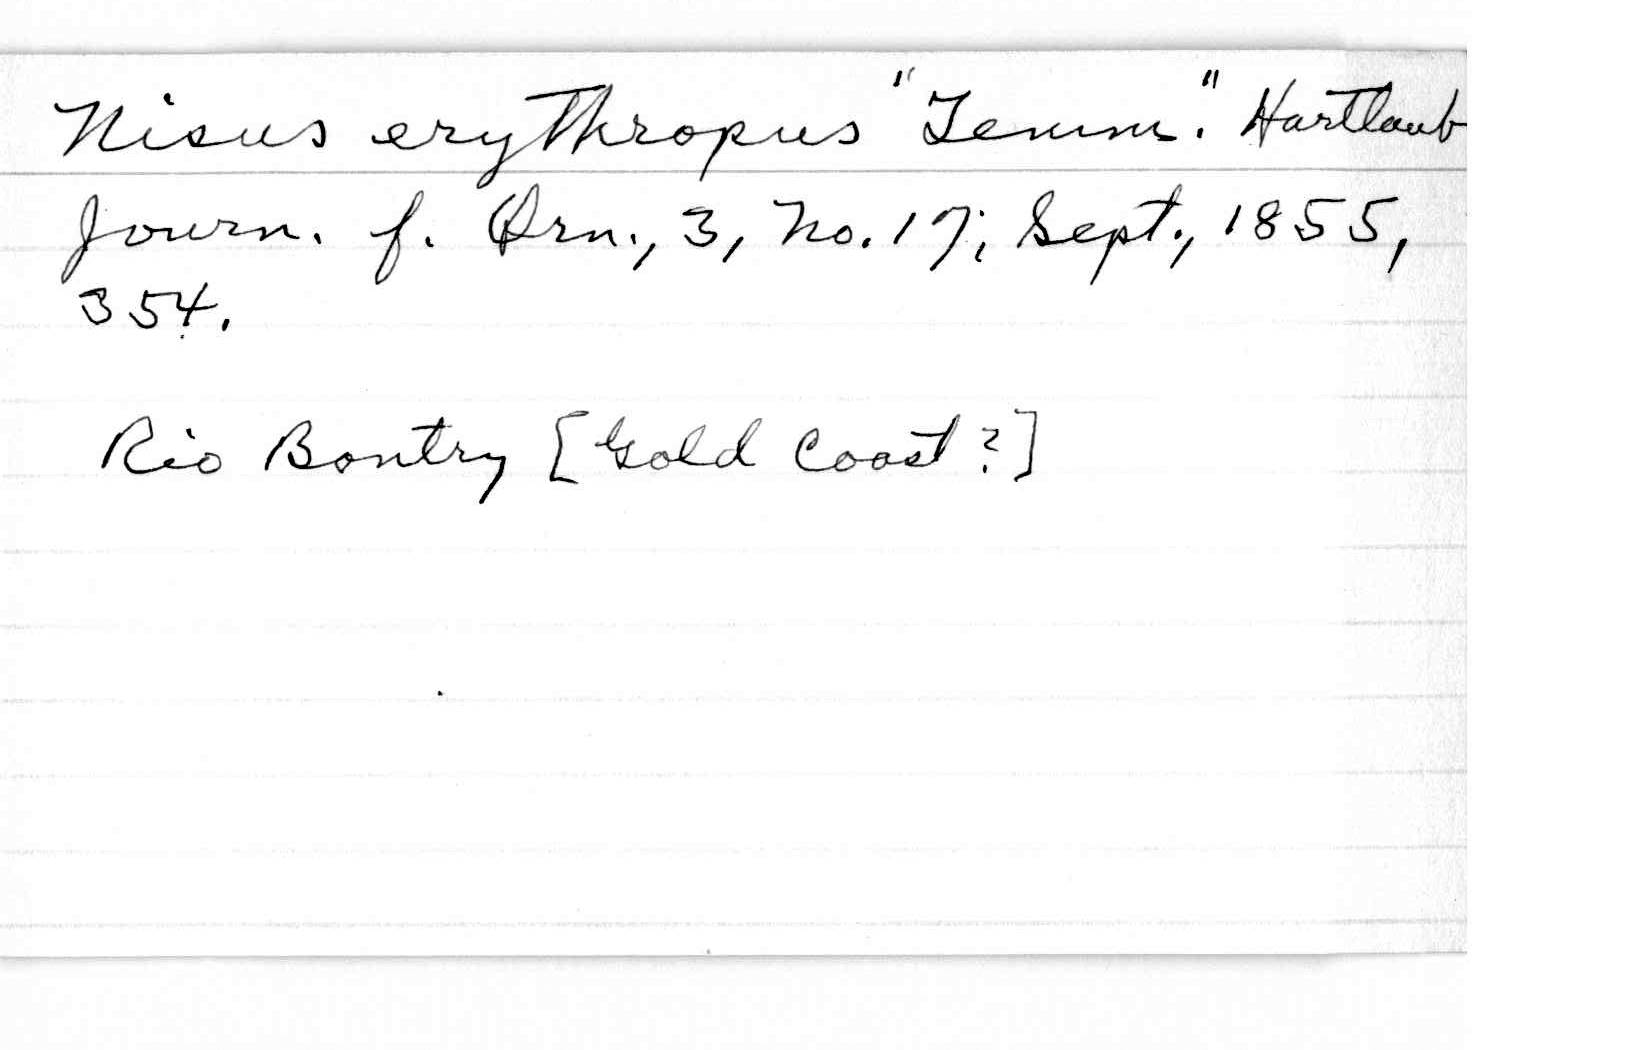 Nisus erythropus "Temm." Hartlaub
Journ. f. Orn., 3, No. 17; Sept., 1855,
354.
Rio Bontry [Gold Coast?]